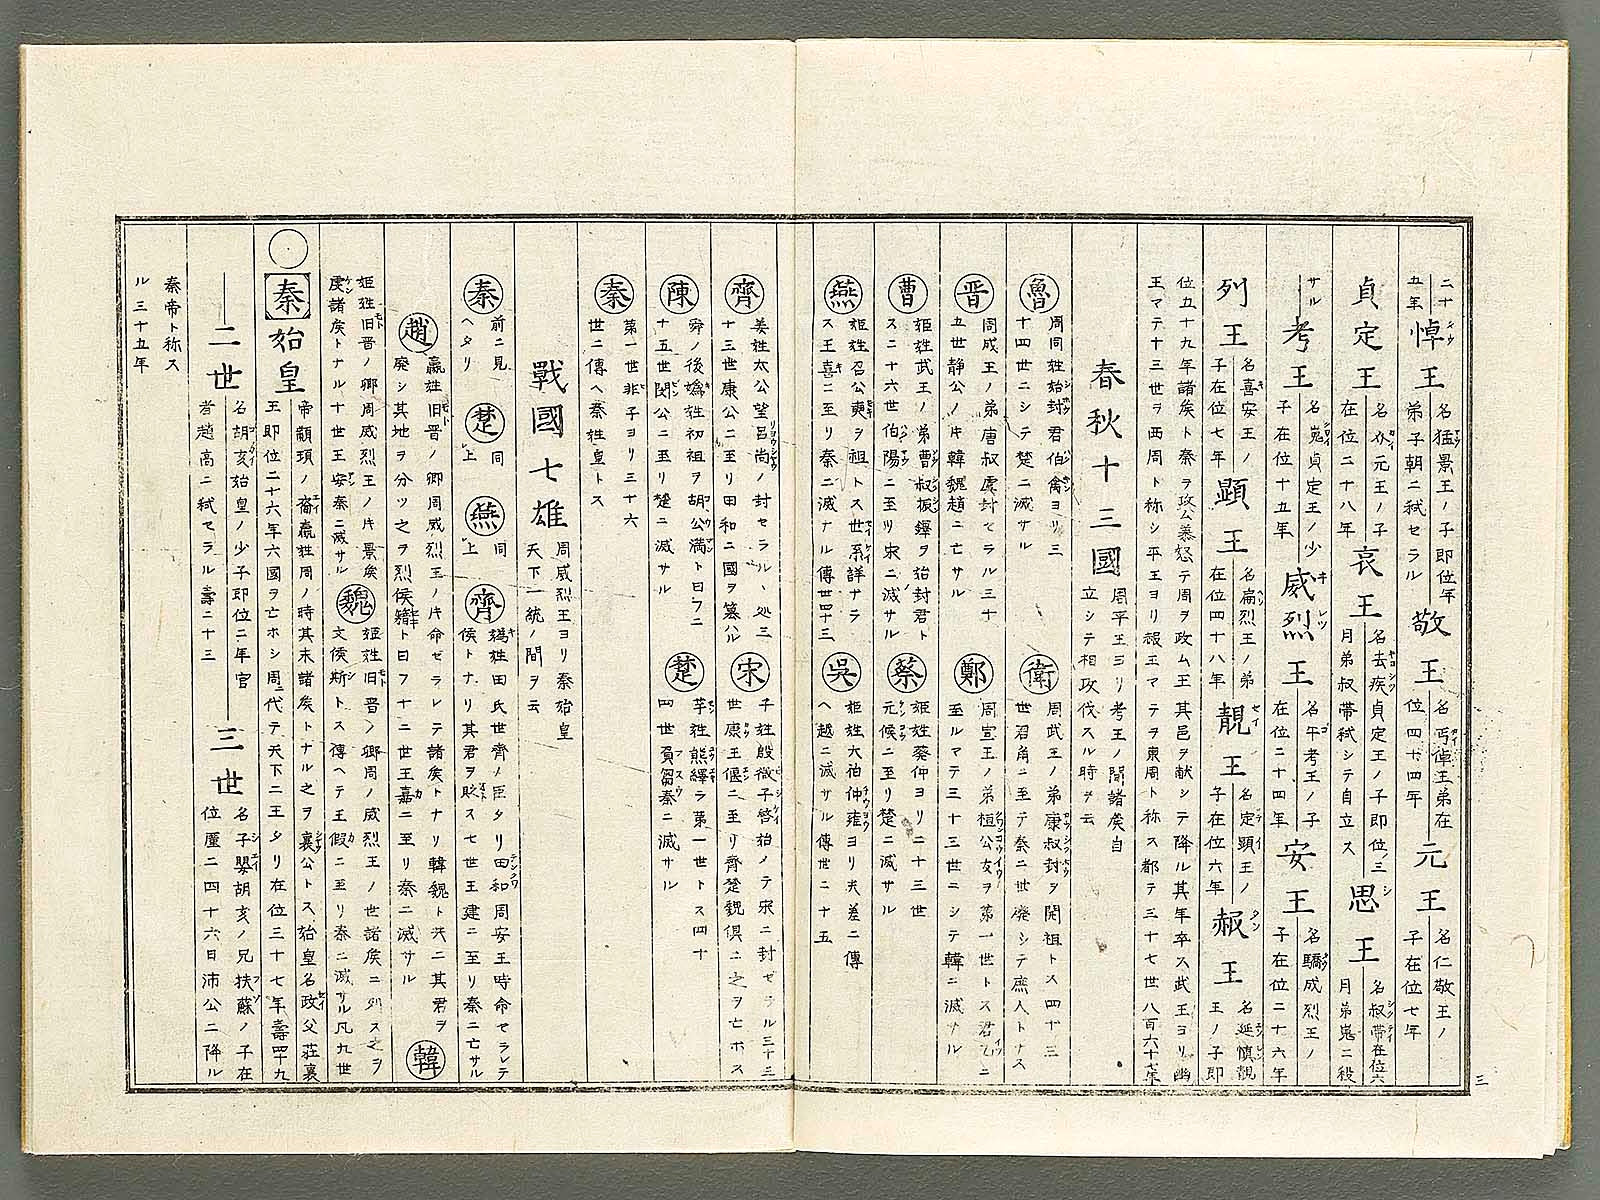 二十五年
悼王
名猛景王ノ子即位年
弟子朝ニ弒セラル
敬王
名丐悼王弟在
位四十四年
元王
名仁敬王ノ
子在位七年
貞定王
名介元王ノ子
在位二十八年
哀王
名去疾貞定王ノ子即位ノ三
月弟叔帯弒シテ自立ス
思王
名叔帯在位六
月弟嵬ニ殺
サル
考王
名嵬貞定王ノ少
子在位十五年
威烈王
名午考王ノ子
在位二十四年
安王
名驕威烈王ノ
子在位二十六年
列王
名喜安王ノ
子在位七年
顕王
名扁烈王ノ弟
在位四十八年
靚王
名定顕王ノ
子在位六年
赧王
名延慎靚
王ノ子即
位五十九年諸矦ト秦ヲ攻ム秦怒テ周ヲ攻ム王其邑ヲ献シテ降ル其年卒ス武王ヨリ幽
王マテ十三世ヲ西周ト称シ平王ヨリ赧王マテヲ東周ト称ス都テ三十七世八百六十七年
春秋十三國
周平王ヨリ考王ノ間諸矦自
立シテ相攻伐スル時ヲ云
魯
周同姓始封君伯禽ヨリ三
十四世ニシテ楚ニ滅サル
衛
周武王ノ弟康叔封ヲ開祖トス四十三
世君角ニ至テ秦二世廃シテ庶人トナス
晋
同成王ノ弟唐叔虞封セラル三十
五世静公ノ片韓魏趙ニ亡サル
鄭
周宣王ノ弟桓公友ヲ第一世トス君乙ニ
至ルマテ三十三世ニシテ韓ニ滅サル
曹
姫姓武王ノ弟曹叔振鐸ヲ始封君ト
ス二十六世伯陽ニ至リ宋ニ滅サル
蔡
姫姓蔡仲ヨリ二十三世
元候ニ至リ楚ニ滅サル
燕
姫姓召公奭ヲ祖トス世系詳ナラ
ス王喜ニ至リ秦ニ滅サル傳世四十三
吳
姫姓大伯仲雍ヨリ夫差ニ傳
ヘ越ニ滅サル傳世二十五
齊
姜姓太公望呂尚ノ封セラルヽ処三
十三世康公ニ至リ田和ニ國ヲ簒ハル
宋
子姓殷微子啓始ノテ宋ニ封セラル三十三
世康王偃ニ至リ齊楚魏倶ニ之ヲ亡ホス
陳
舜ノ後嬀姓初祖ヲ胡公満ト曰フニ
十五世閔公ニ至リ楚ニ滅サル
楚
芊姓熊繹ラ第一世トス四十
四世負芻秦ニ滅サル
秦
第一世非子ヨリ三十六
世ニ傳ヘ秦始皇トス
戰國七雄
周威烈王ヨリ秦始皇
天下一統ノ間ヲ云
秦
前ニ見
ヘタリ
楚
同
上
燕
同
上
齊
嬀姓田氏世齊ノ臣タリ田和周安王時命セラレテ
侯トナリ其君ヲ貶ス七世王建ニ至リ秦ニ亡サル
趙
嬴姓旧晋ノ卿周威烈王ノ片命ゼラレテ諸矦トナリ韓魏ト共ニ其君ヲ
廃シ其地ヲ分ツ之ヲ烈侯籍ト曰フ十二世王嘉ニ至リ秦ニ滅サル
韓
姫姓旧晋ノ卿周威烈王ノ片景矦
虔諸矦トナル十世王安秦ニ滅サル
魏
姫姓旧晋ノ卿周ノ威烈王ノ世諸矦ニ列ス之ヲ
文侯斯トス傳ヘテ王假ニ至リ秦ニ滅サル凡九世
秦
始皇
帝顓頊ノ裔嬴姓周ノ時其末諸矦トナル之ヲ襄公トス始皇名政父荘襄
王即位二十六年六國ヲ亡ホシ周ニ代テ天下ニ王タリ在位三十七年壽四十九
二世
名胡亥始皇ノ少子即位二年官
者趙高ニ弒セラル壽二十三
三世
名子嬰胡亥ノ兄扶蘇ノ子在
位㕓ニ四十六日沛公ニ降ル
秦帝ト称ス
ル三十五年
三